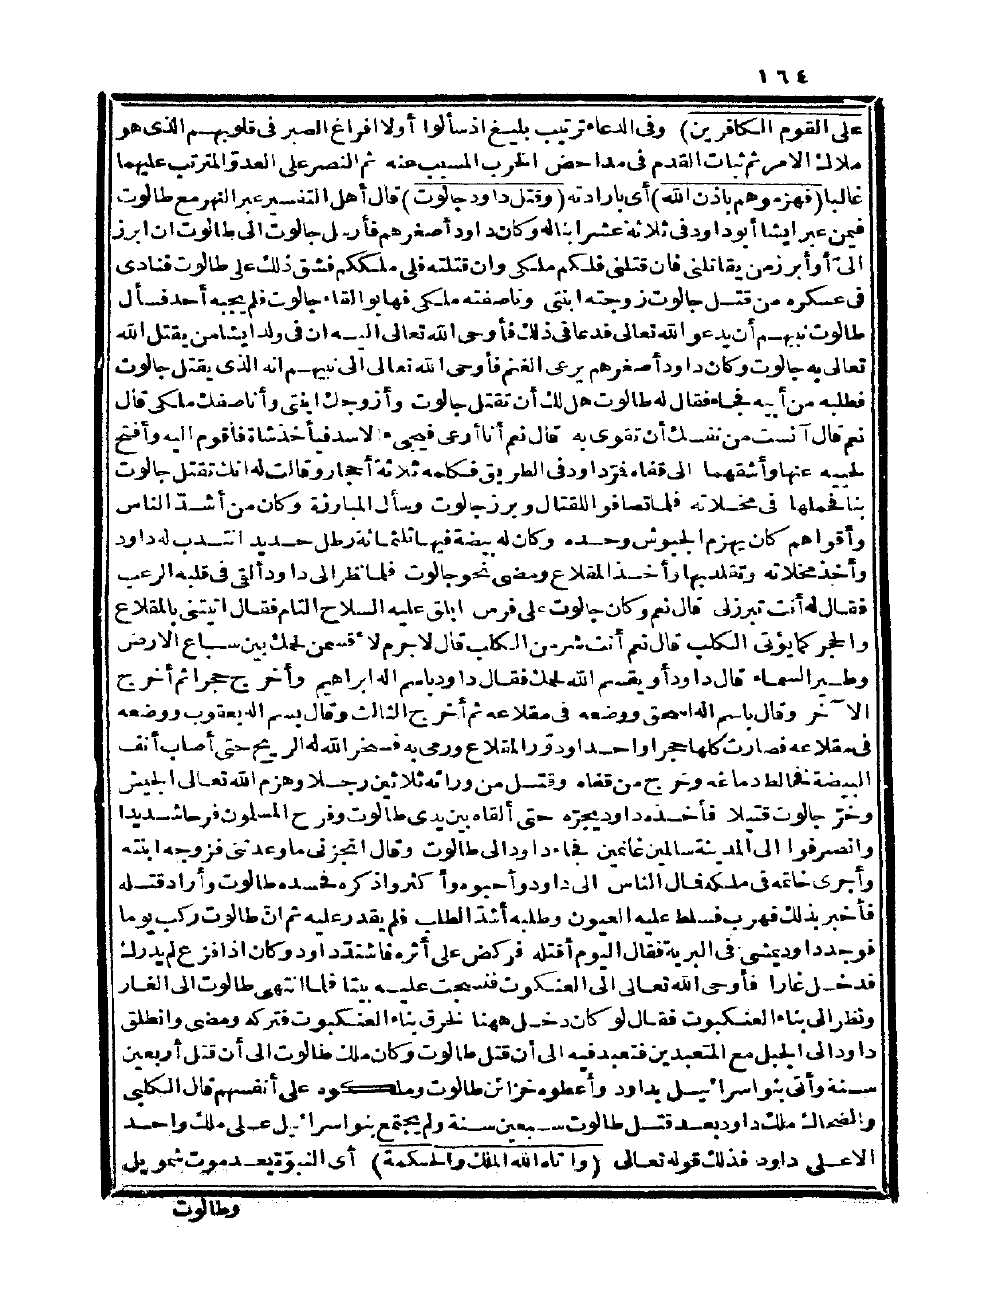 ١٦٤
على القوم الكافرين) وفى الدعاء ترتيب بليغ اذ سألوا أولا افراغ الصبر فى قلوبهم الذى هو
ملاك الامر ثم ثبات القدم فى مداحض الحرب المسبب عنه ثم النصر على العدو المترتب عليهما
غالبا (فهزموهم باذن الله) أى بارادته (وقتل داود جالوت) قال أهل التفسير عبر النهر مع طالوت
فيمن عبر ايشا أبو داود فى ثلاثة عشر ابنا له وكان داود أصغرهم فأرسل جالوت الى طالوت ان ابرز
الىّ أو أبرز من يقاتلنى فان قتلنى فلكم ملكى وان قتلته فلى ملككم فشق ذلك على طالوت فنادى
فى عسكره من قتل جالوت زوجته ابنتى وناصفته ملكى فهابوا لقاء جالوت فلم يجبه أحد فسأل
طالوت نبيهم أن يدعو الله تعالى فدعا فى ذلك فأوحى الله تعالى اليه ان فى ولد ايشا من يقتل الله
تعالى به جالوت وكان داود أصغرهم يرعى الغنم فأوحى الله تعالى الى نبيهم انه الذى يقتل جالوت
فطلبه من أبيه فجاء فقال له طالوت هل لك أن تقتل جالوت وأزوجك ابنتى وأناصفك ملكى قال
نعم قال آنست من نفسك أن تقوى به قال نعم أنا أرعى فيجىء الاسد فيأخذ شاة فأقوم اليه وأفتح
لحييه عنها وأشقهما الى قفاه فمرّ داود فى الطريق فكلمه ثلاثة أحجار وقالت له انك تقتل جالوت
بنا فحملها فى مخلاته فلما تصافوا للقتال وبرز جالوت وسأل المبارزة وكان من أشدّ الناس
وأقواهم كان يهزم الجيوش وحده وكان له بيضة فيها ثلثمائة رطل حديد انتدب له داود
وأخذ مخلاته وتقلد بها وأخذ المقلاع ومضى نحو جالوت فلما نظر الى داود ألقى فى قلبه الرعب
فقال له أنت تبرز لى قال نعم وكان جالوت على فرس ابلق عليه السلاح التام فقال اتيتنى بالمقلاع
والحجر كما يؤتى الكلب قال نعم أنت شر من الكلب قال لا جرم لأقسمن لحمك بين سباع الارض
وطير السماء قال داود أو يقسم الله لحمك فقال داود باسم اله ابراهيم وأخرج حجرا ثم أخرج
الآخر وقال باسم اله اسحق ووضعه فى مقلاعه ثم أخرج الثالث وقال بسم اله يعقوب ووضعه
فى مقلاعه فصارت كلها حجرا واحدا ودوّر المقلاع ورمى به فسخر الله له الريح حتى أصاب أنف
البيضة فخالط دماغه وخرج من قفاه وقتل من ورائه ثلاثين رجلا وهزم الله تعالى الجيش
وخرّ جالوت قتيلا فأخذه داود يجرّه حتى ألقاه بين يدى طالوت وفرح المسلمون فرحا شديدا
وانصرفوا الى المدينة سالمين غانمين فجاء داود الى طالوت وقال انجز لى ما وعدتنى فزوجه ابنته
وأجرى خاتمه فى ملكه فمال الناس الى داود وأحبوه وأكثروا ذكره فحسده طالوت وأراد قتله
فأخبر بذلك فهرب فسلط عليه العيون وطلبه أشدّ الطلب فلم يقدر عليه ثم انّ طالوت ركب يوما
فوجد داود يمشى فى البرية فقال اليوم أقتله فركض على أثره فاشتد داود وكان اذا فزع لم يدرك
فدخل غارا فأوحى الله تعالى الى العنكبوت فنسجت عليه بيتا فلما انتهى طالوت الى الغار
ونظر الى بناء العنكبوت فقال لو كان دخل ههنا لخرق بناء العنكبوت فتركه ومضى وانطلق
داود الى الجبل مع المتعبدين فتعبد فيه الى أن قتل طالوت وكان ملك طالوت الى أن قتل أربعين
سنة وأتى بنو اسرائيل بداود وأعطوه خزائن طالوت وملكوه على أنفسهم قال الكلبى
والضحاك ملك داود بعد قتل طالوت سبعين سنة ولم يجتمع بنو اسرائيل على ملك واحد
الا على داود فذلك قوله تعالى (وآتاه الله الملك والحكمة) أى النبوّة بعد موت شمويل
وطالوت